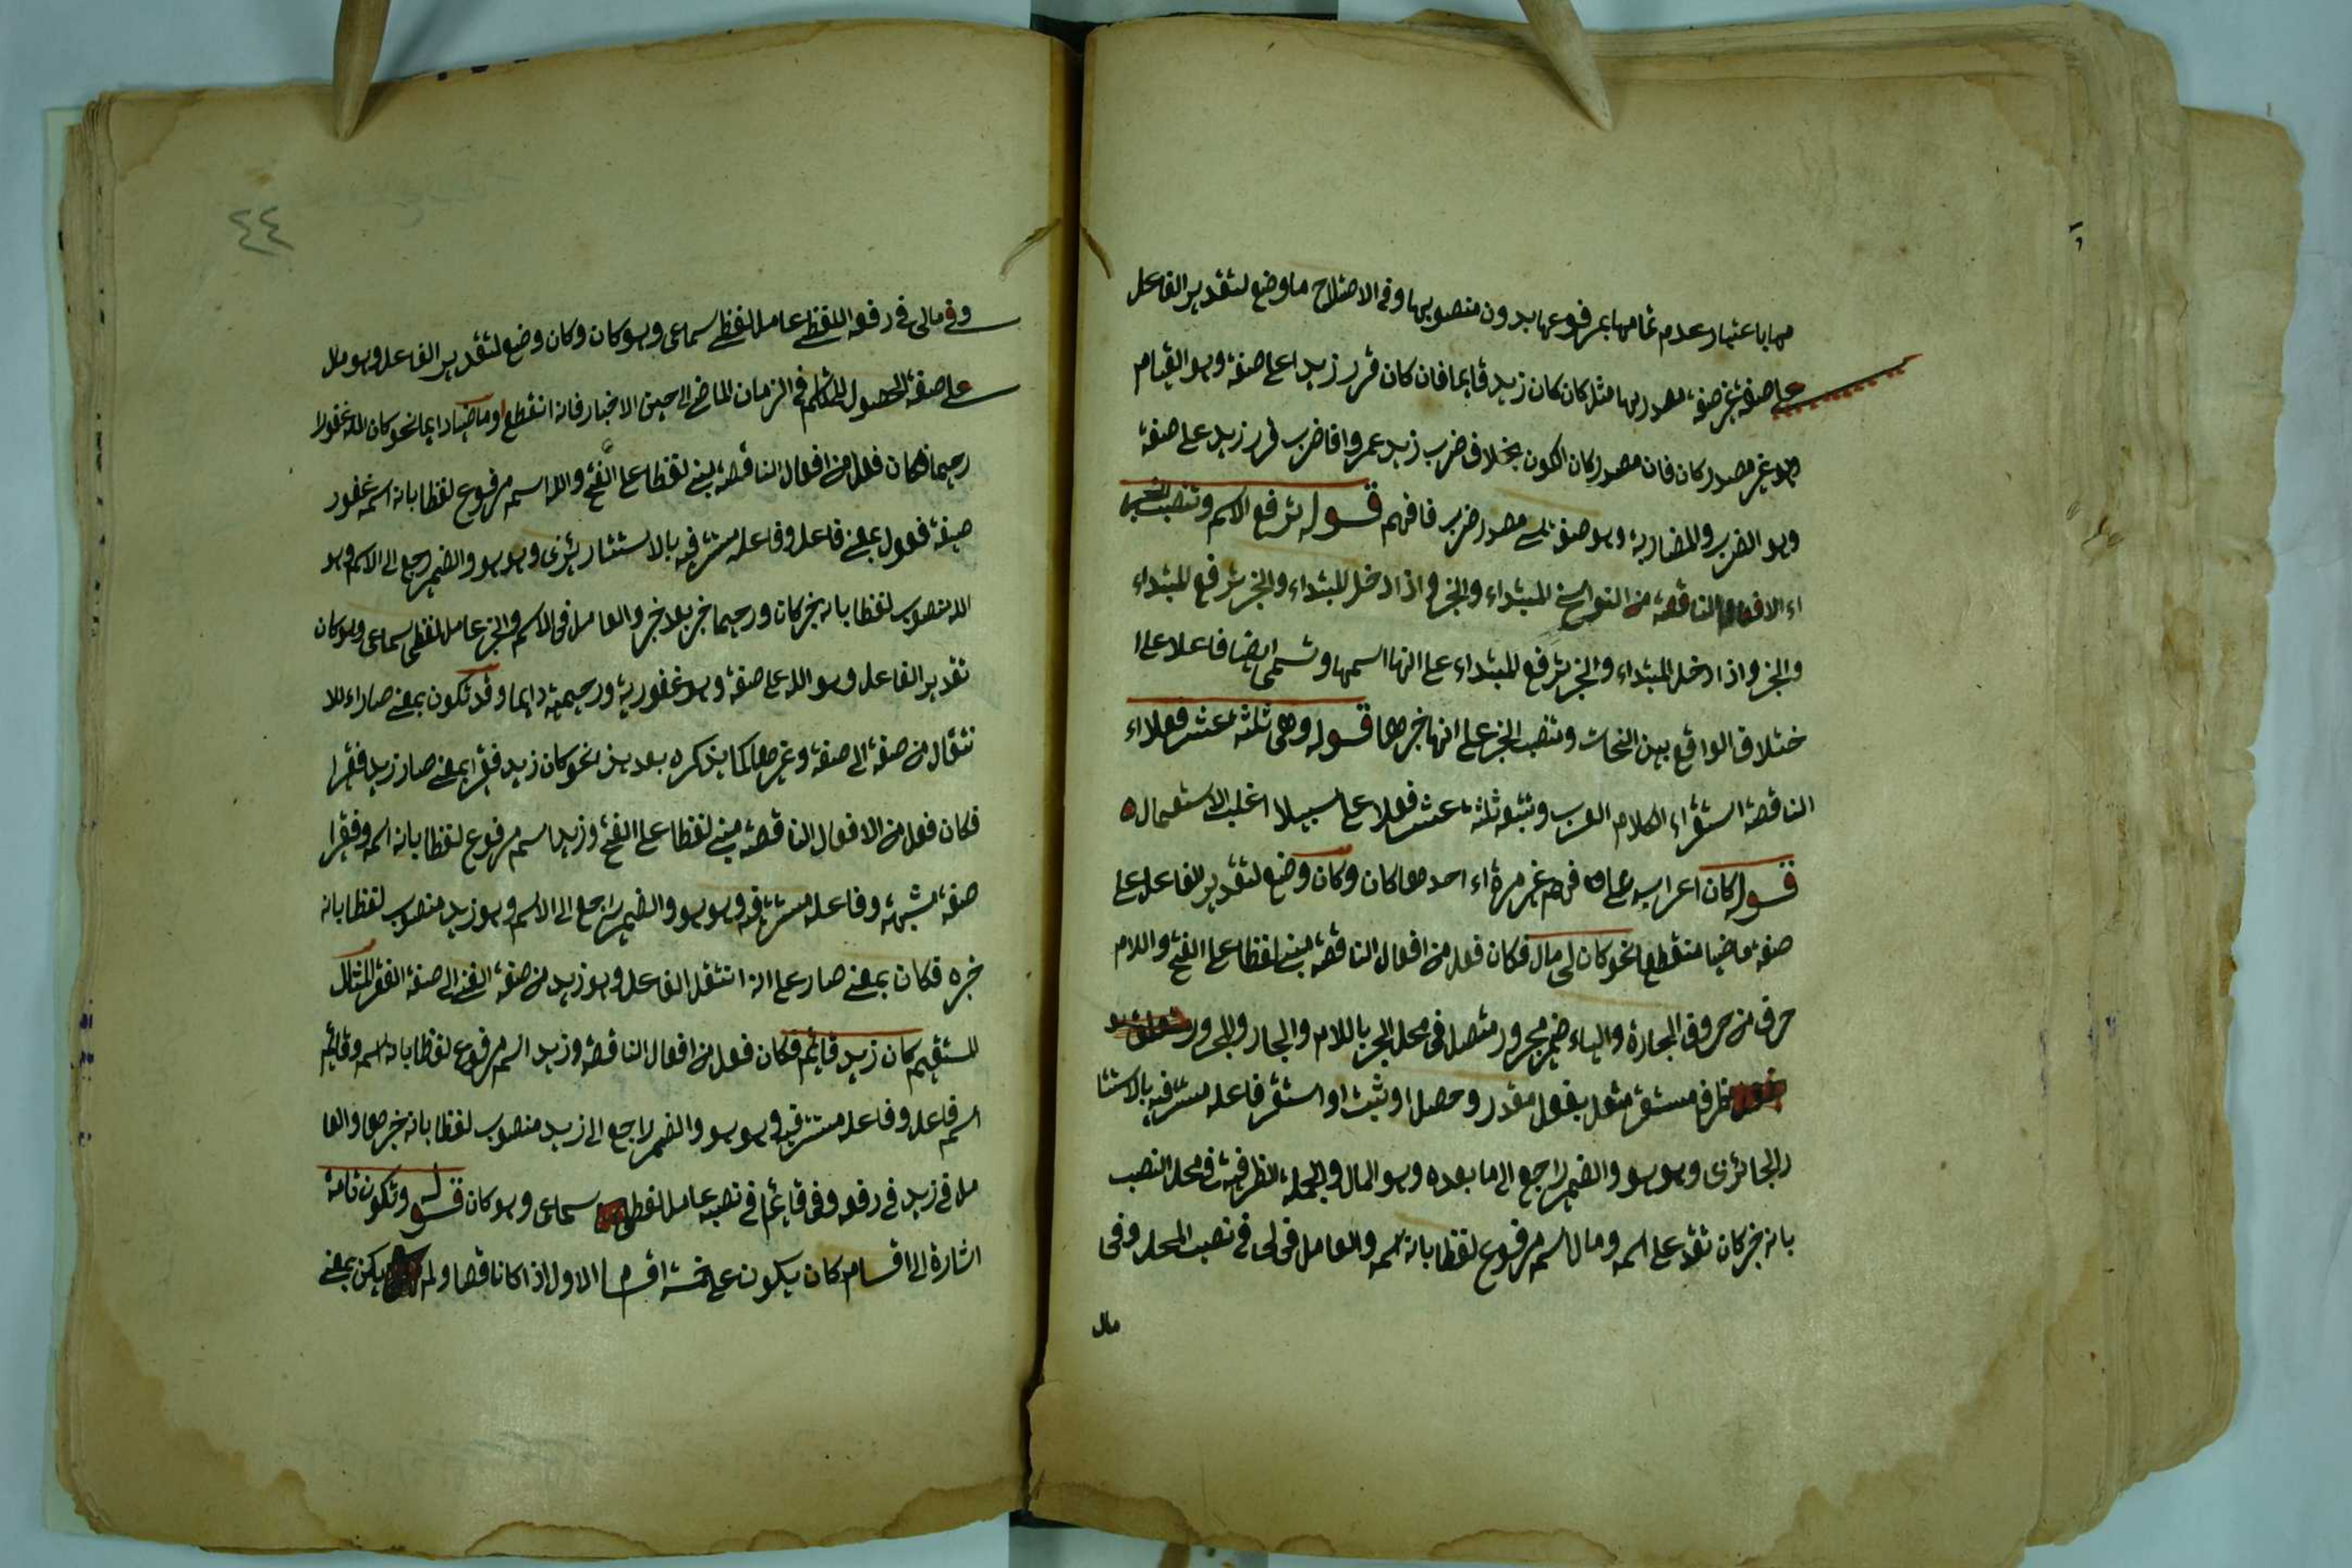 مها باعتبار عدم تمامها بمرفوعها بدون منصوبها وفى الاصتلاح ما وضع لتقدير الفاعل
على صفة غير صفة مصدرها مثل كان كان زيد قايما فان كان قرر زيدا على صفة وهو القيام
وهو غير مصدر كان فان مصدر كان الكون بخلاف ضرب زيد عمروا فا ضرب قرر زيد على صفة
وهو الضرب والمضاربة وهو صفة هى مصدر ضرب فافهم قوله ترفع الاسم وتنصب
اء الافعال الناقصة من النواسخ المبتداء والخبر واذا ادخل المبتداء والخبر ترفع المبتداء
والخبر واذا ادخل المبتداء والخبر ترفع المبتداء على انها اسمها وتسمى ايضا فاعلا على ا
ختلاف الواقع بين النحات وتنصب الخبر على انها خبرها قوله وهى ثلثة عشر فعلا اء
الناقصة استقراء الكلام العرب وتتبعه ثلثة عشر فعلا على سبيلا اغلب الاستعمال
قوله كان اعرابه على فهم غير مرة اء احدها كان وكان وضع لتقدير الفاعل على
صفة ماضيا منقطعا نحو كان لى مال فكان فعل من افعال الناقصة مبنى لفظا على الفتح واللام
حرف من حروف الجارة والياء ضمير مجرور متصل فى محل الجر باللام والجار والمجرور
ظرف مستقر متعلق بفعل مقدر وحصل او ثبت او استقر فاعله مستتر فيه بالاستتا
ر الجائزى وهو هو والضمير راجع الى ما بعده وهو المال والجملة الظرفية فى محل النصب
بانه خبر كان تقدم على اسمه ومال اسم مرفوع لفظا بانه اسمه والعامل فى لى فى نصب المحل وفى
مال
٤٤
وفى مالى فى رفعه اللفظ عامل لفظى سماعى وهو كان وكان وضع لتقدير الفاعل وهو مال
على صفة الحصول للمتكلم فى الزمان الماضى الى حين الاخبار فانه انقطع او ماضيا دايما نحو كان الله غفورا
رحيما فكان فعل من افعال الناقصة مبنى لفظا على الفتح والله اسم مرفوع لفظا بانه اسمه غفور
صيغة فعول بمعنى فاعل وفاعله مستتر فيه بالاستتار يئزى وهو هو والضمير راجع الى الاسم وهو
الله منصوب لفظا بانه خبر كان ورحيما خبر بعد خبر والعامل فى الاسم والخبر عامل لفظى سماعى وهو كان
تقدير الفاعل وهو الله على صفة وهو غفورية ورحيمية دايما وقد تكون بمعنى صار اء للا
نتقال من صفة الى صفة وغيرها كما يذكره بعد يذ نحو كان زيد فقيرا بمعنى صار زيد فقيرا
فكان فعل من الافعال الناقصة مبنى لفظا على الفتح وزيد اسم مرفوع لفظا بانه اسمه وفقيرا
صفة مشبهة وفاعله مستتر فيه وهو هو والضمير راجع الى الاسم وهو زيد منصوب لفظا بانه
خبره فكان بمعنى صار على انه انتقل الفاعل وهو زيد من صفة الغنى الى صفة الفقر المثال
المستقيم كان زيد قائم فكان فعل من افعال الناقصة وزيد اسم مرفوع لفظا بانه اسمه وقائم
اسم فاعل وفاعله مستتر فيه وهو هو والضمير راجع الى زيد منصوب لفظا بانه خبرها والعا
مل فى زيد فى رفعه وفى قائم فى نصبه عامل لفظى سماعى وهو كان قوله وتكون تامة
اشارة الى اقسام كان يكون على خمسة اقسام الاول اذا كانا قصا ولم يكن بمعنى